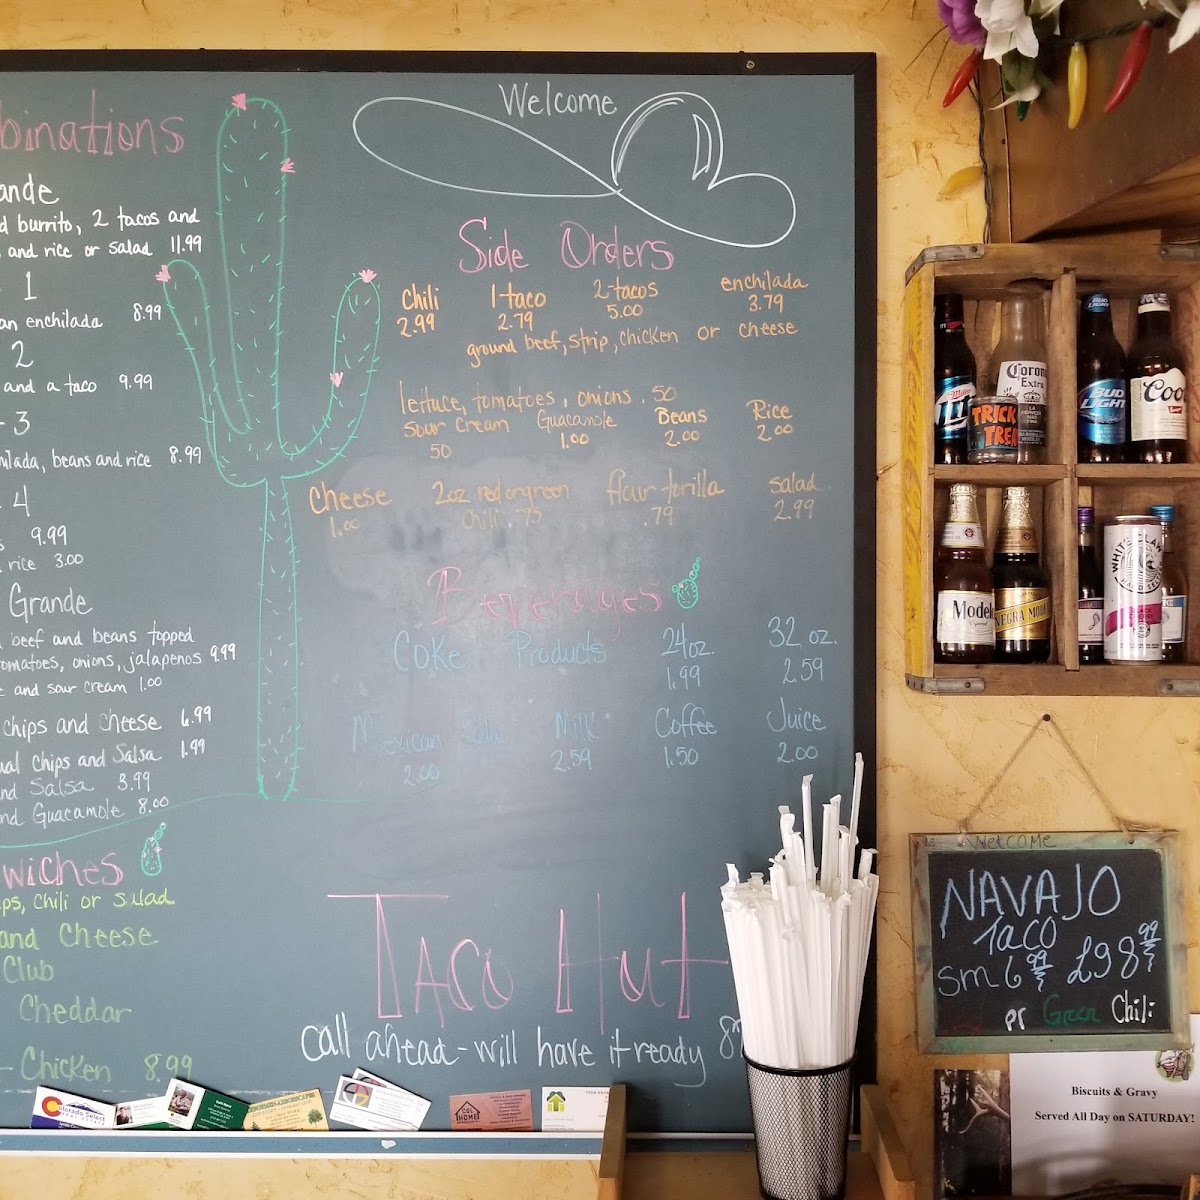 binations
ande
d burrito, 2 tacos and
and rice or salad 11.99
1
an enchilada 8.99
2
and a taco 9.99
- 3
hilada, beans and rice 8.99
4
9.99
rice 3.00
Grande
beef and beans topped
tomatoes, onions, jalapenos 9.99
and sour cream 1.00
chips and cheese 6.99
ual chips and Salsa 1.99
nd Salsa 3.99
nd Guacamole 8.00
wiches
ps, chili or salad
and Cheese
Club
Cheddar
- Chicken 8.99
Welcome
Side Orders
Chili 1-taco 2-tacos enchilada
2.99 2.79 5.00 3.79
ground beef, strip, chicken or cheese
lettuce, tomatoes, onions .50
Sour Cream Guacamole Beans Rice
50 1.00 2.00 2.00
Cheese 2oz red or green flour torilla salad
1.00 Chili .75 .79 2.99
Beverages
Coke Products 24oz. 32 oz.
1.99 2.59
Mexican Milk Coffee Juice
2.00 2.59 1.50 2.00
Taco Hut
call ahead - will have it ready
Miller
Corona
Extra
TRICK
TREA
BUD
LIGHT
Coo
Modelo
NEGRA MOD
WHITE CLAW
HARD SELTZ
Welcome
NAVAJO
TACO
sm 6 99 Lg 8 99
or Green Chili
Biscuits & Gravy
Served All Day on SATURDAY!
Colorado Select
REAL ESTATE